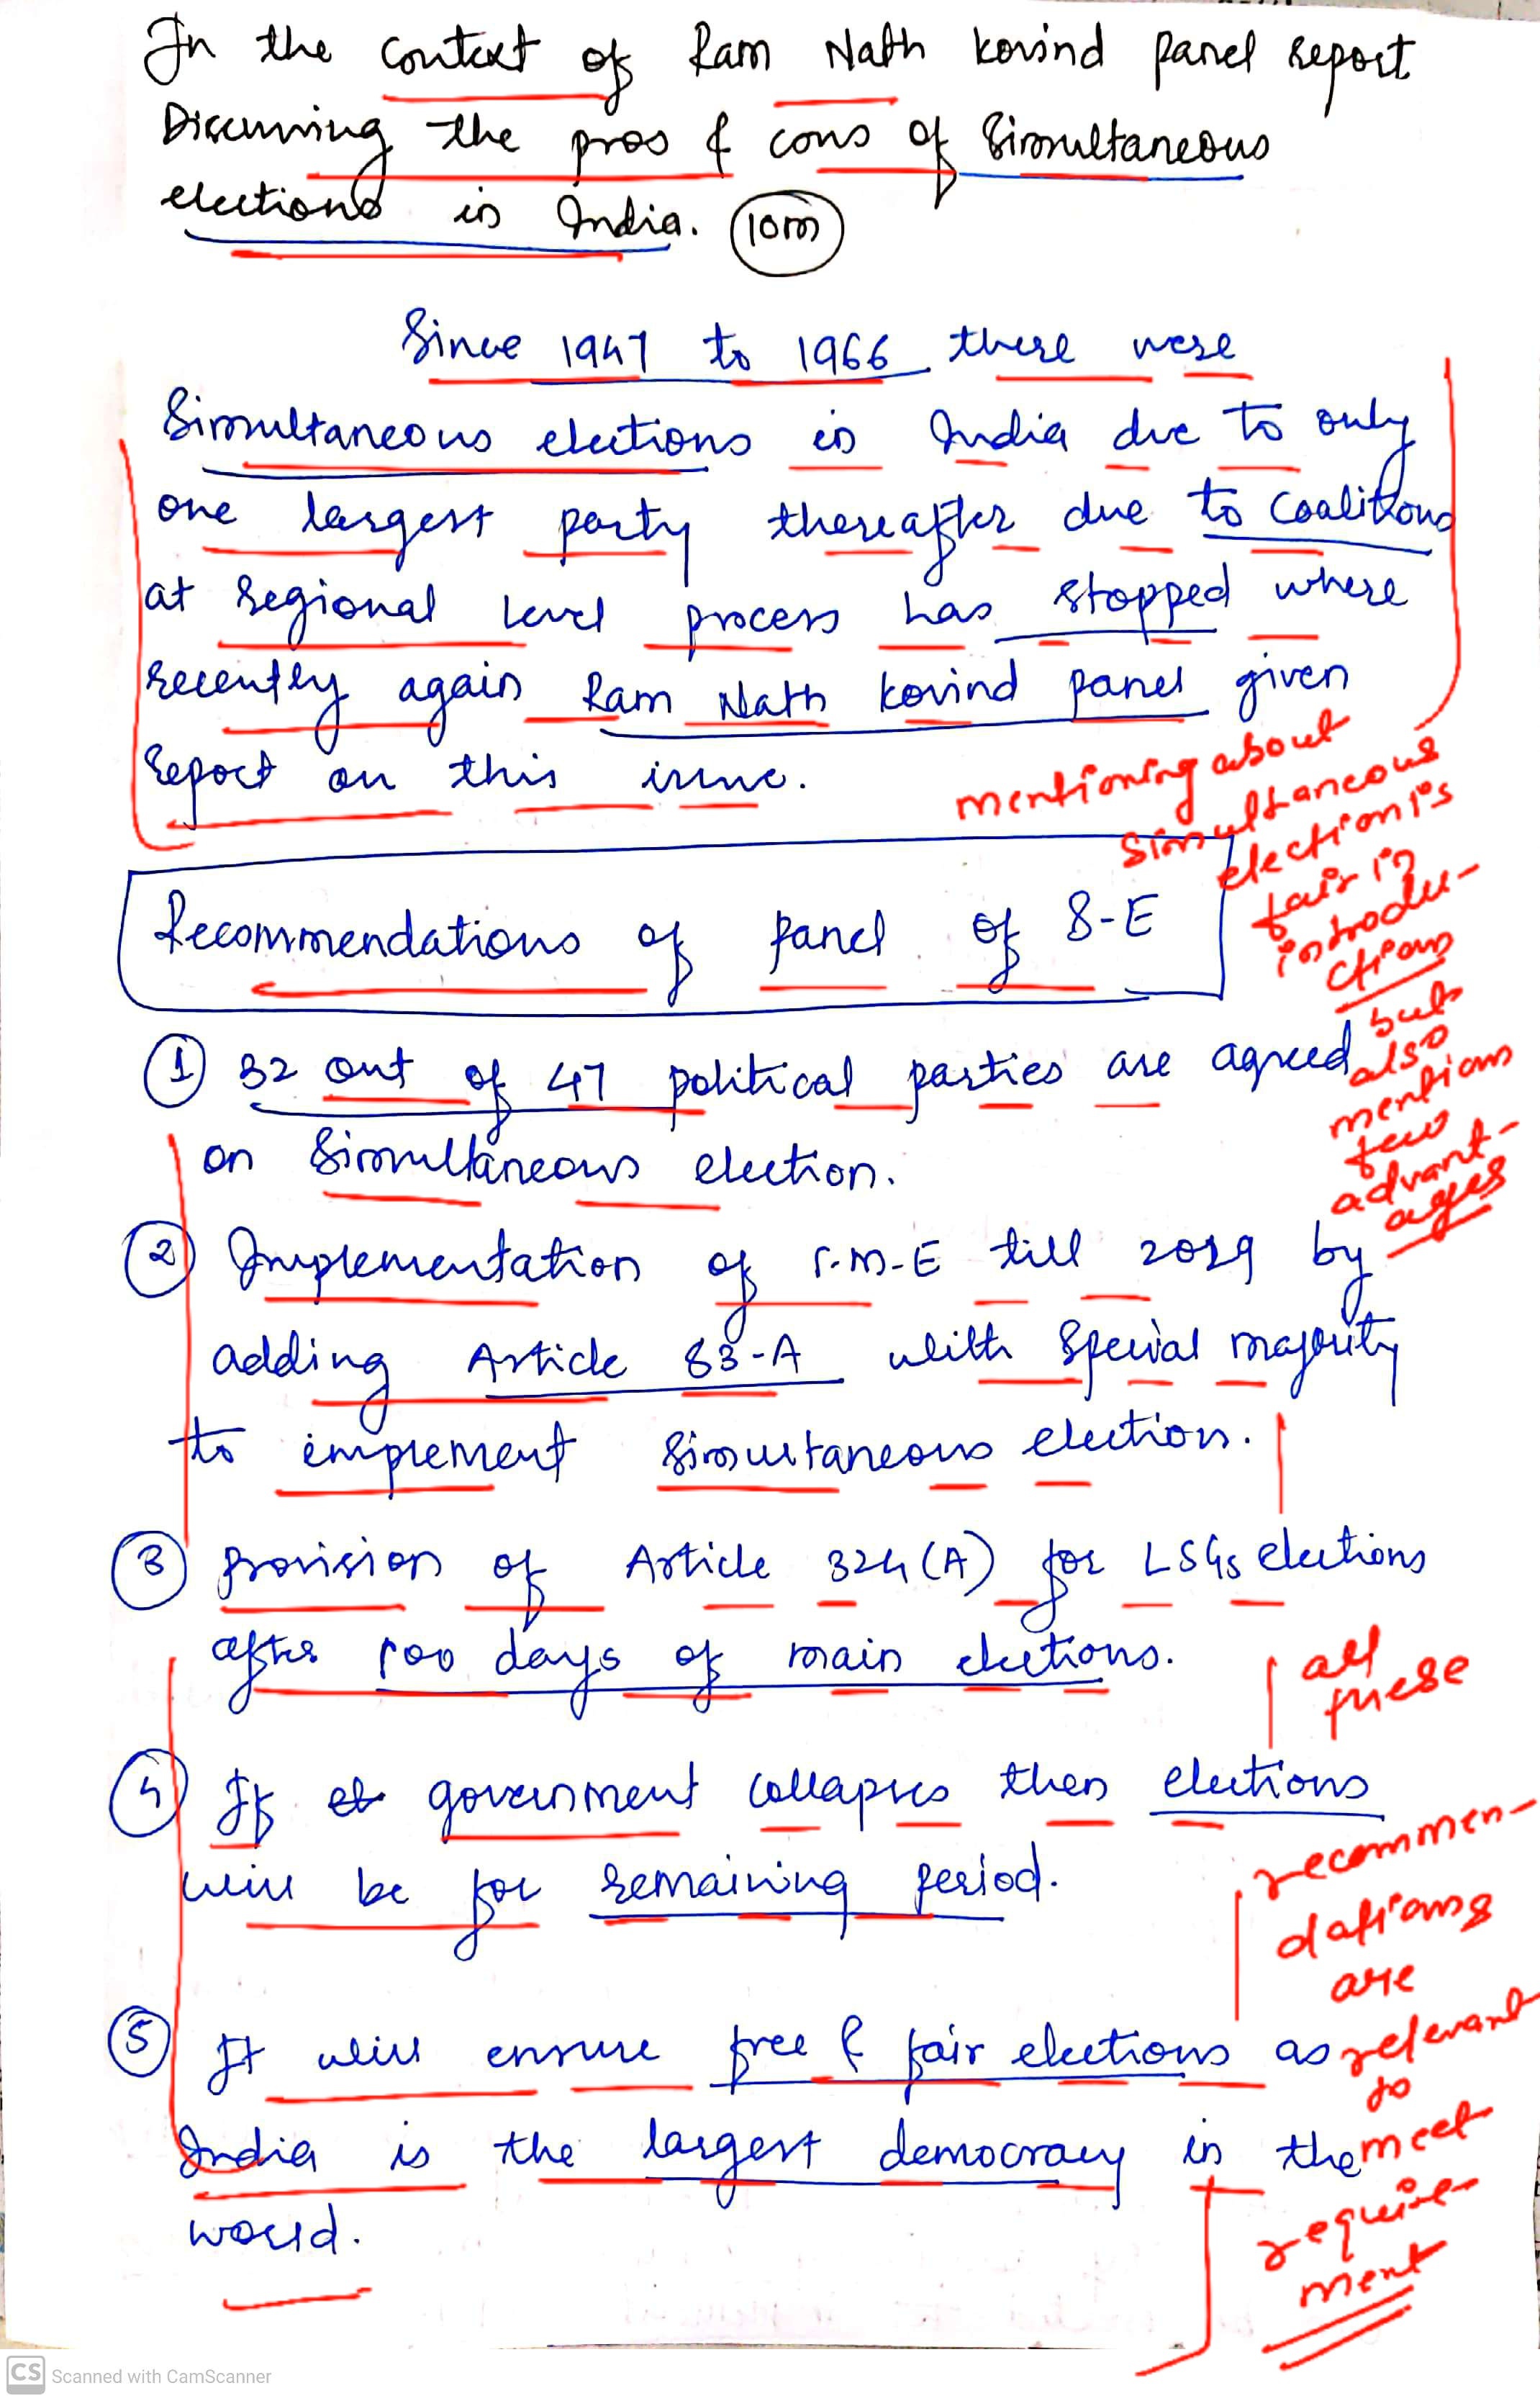 In the context of Ram Nath Kovind panel report
Discussing the pros & cons of Simultaneous
elections in India. 10m
Since 1947 to 1966 there were
Simultaneous elections in India due to only
one largest party thereafter due to Coalitions
at regional level process has stopped where
recently again Ram Nath Kovind panel given
report on this issue.
mentioning about
simultaneous
election is
fair in
introdu-
ction
but
also
mention
few
advant-
ages
Recommendations of Panel of S-E
① 32 out of 47 political parties are agreed
on Simultaneous election.
② Implementation of S.M-E till 2029 by
adding Article 83-A with Special majority
to implement Simultaneous election.
③ Provision of Article 324(A) for LSGs elections
after 100 days of main elections.
④ If government collapses then elections
will be for remaining period.
⑤ It will ensure free & fair elections as
India is the largest democracy in the
world.
all
these
recommen-
dations
are
relevant
to
meet
require-
ment
CS Scanned with CamScanner